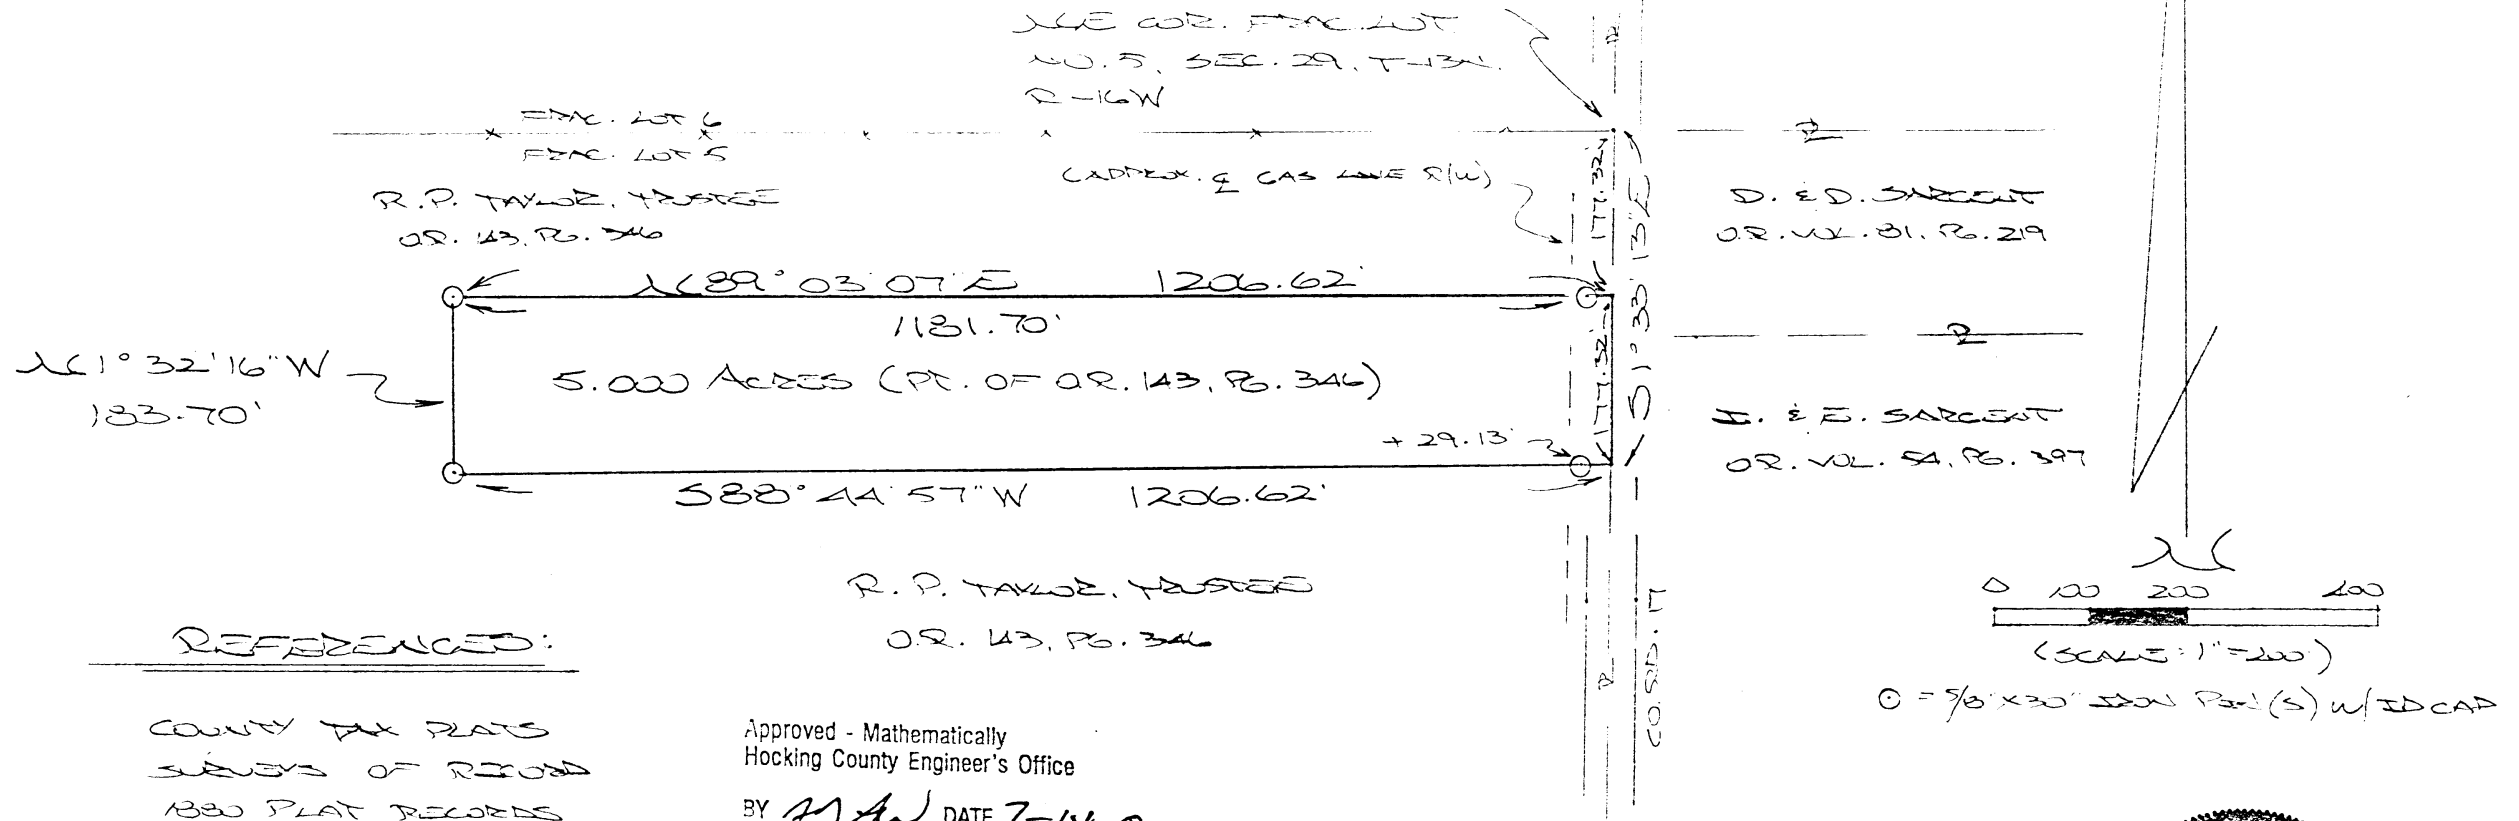 NE COR. FRAC. LOT
NO. 5, SEC. 29, T-13N,
R-16W
FRAC. LOT 6
FRAC. LOT 5
R.P. TAYLOR, TRUSTEE
O.R. 143, PG. 346
(APPROX. ℄ GAS LINE R/W)
177.32'
S 1° 33' 13" E
D. & D. SARGENT
O.R. VOL. 81, PG. 219
N 89° 03' 07" E 1206.62'
1181.70'
N 1° 32' 16" W
183.70'
5.000 ACRES (PT. OF O.R. 143, PG. 346)
177.32'
+ 29.13'
I. & E. SARGENT
O.R. VOL. 54, PG. 397
S 88° 44' 57" W 1206.62'
R. P. TAYLOR, TRUSTEE
O.R. 143, PG. 346
CO. RD. 17
N
0 100 200 400
(SCALE: 1"=200')
⊙ = 5/8"X30" IRON PIN(S) W/ ID CAP
REFERENCED:
COUNTY TAX PLATS
SURVEYS OF RECORD
1880 PLAT RECORDS
Approved - Mathematically
Hocking County Engineer's Office
BY DATE